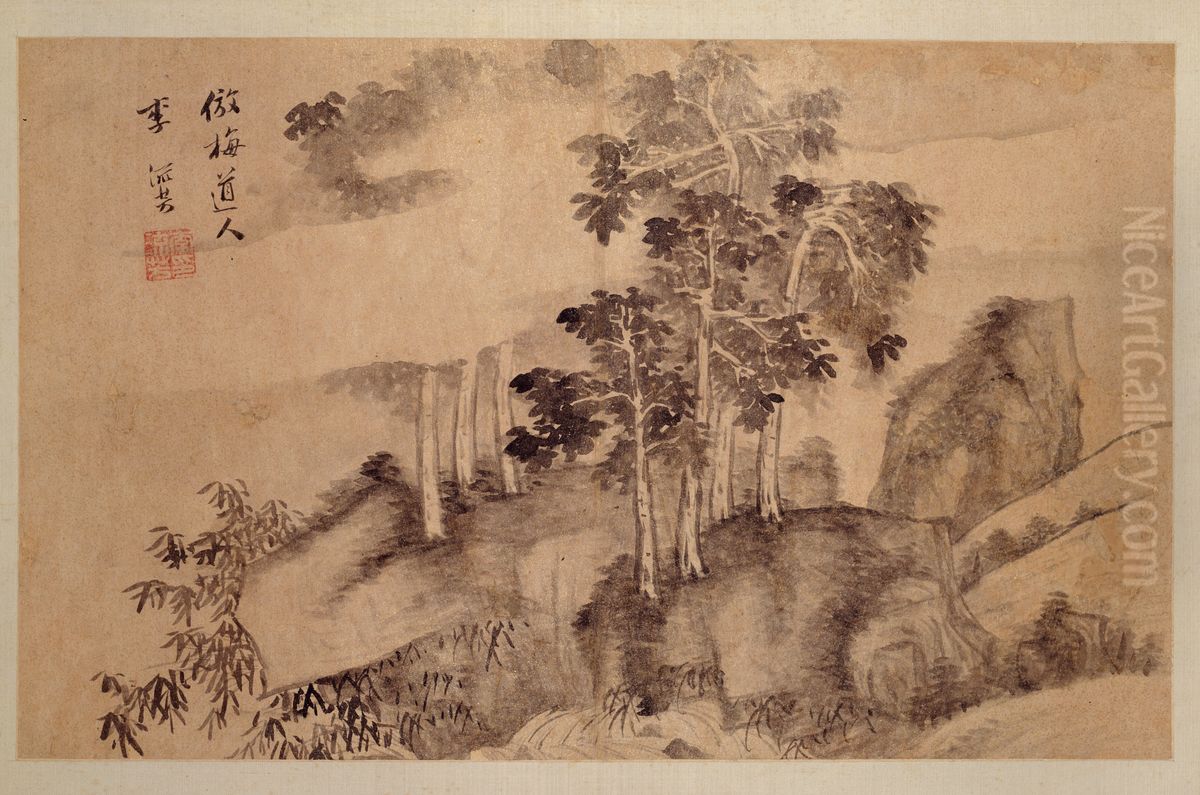 倣梅道人
李流芳
NiceArtGallery.com